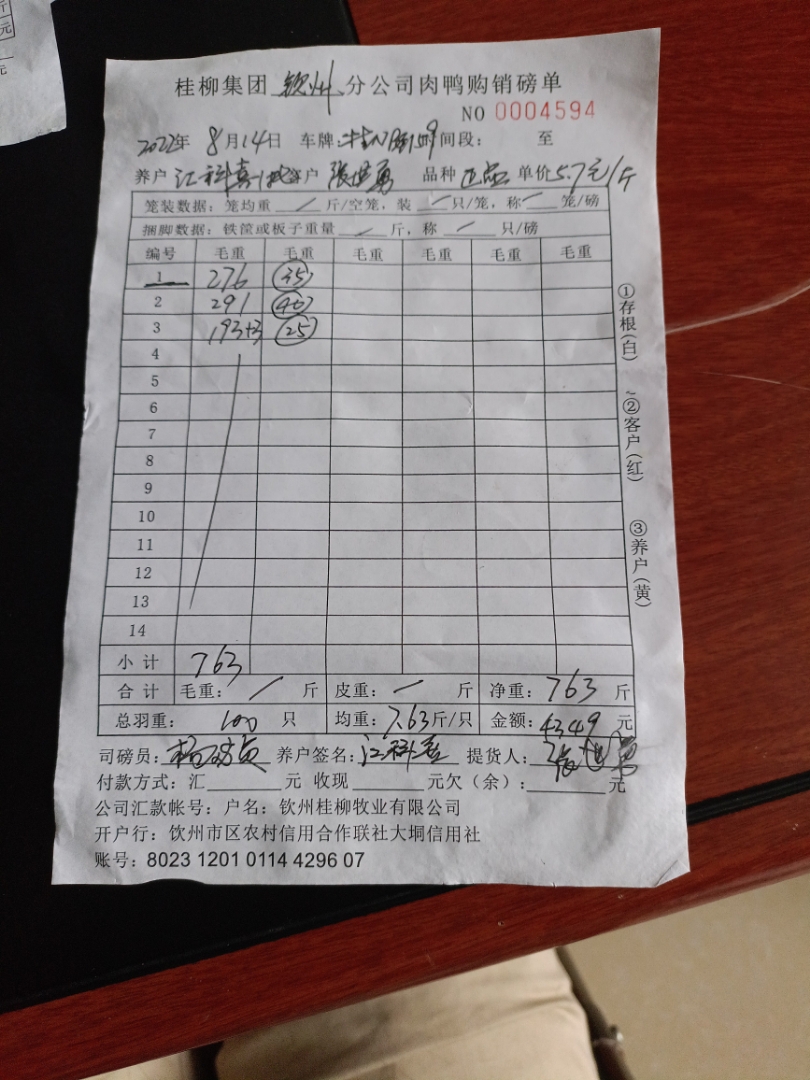 斤
元
元
桂柳集团 钦州 分公司肉鸭购销磅单
NO 0004594
2022年 8月14日 车牌: 时间段: 至
养户 江科嘉 客户 张世勇 品种 正品 单价5.7元/斤
笼装数据: 笼均重 / 斤/空笼, 装 / 只/笼, 称 / 笼/磅
捆脚数据: 铁筐或板子重量 / 斤, 称 / 只/磅
编号 毛重 毛重 毛重 毛重 毛重 毛重
1 276 35
2 291 40
3 193+3 25
4
5
6
7
8
9
10
11
12
13
14
小计 763
合计 毛重: / 斤 皮重: / 斤 净重: 763 斤
总羽重: 100 只 均重: 7.63斤/只 金额: 4349 元
司磅员: 养户签名: 提货人:
付款方式: 汇 元 收现 元欠(余): 元
公司汇款帐号: 户名: 钦州桂柳牧业有限公司
开户行: 钦州市区农村信用合作联社大垌信用社
账号: 8023 1201 0114 4296 07
①存根(白)
②客户(红)
③养户(黄)